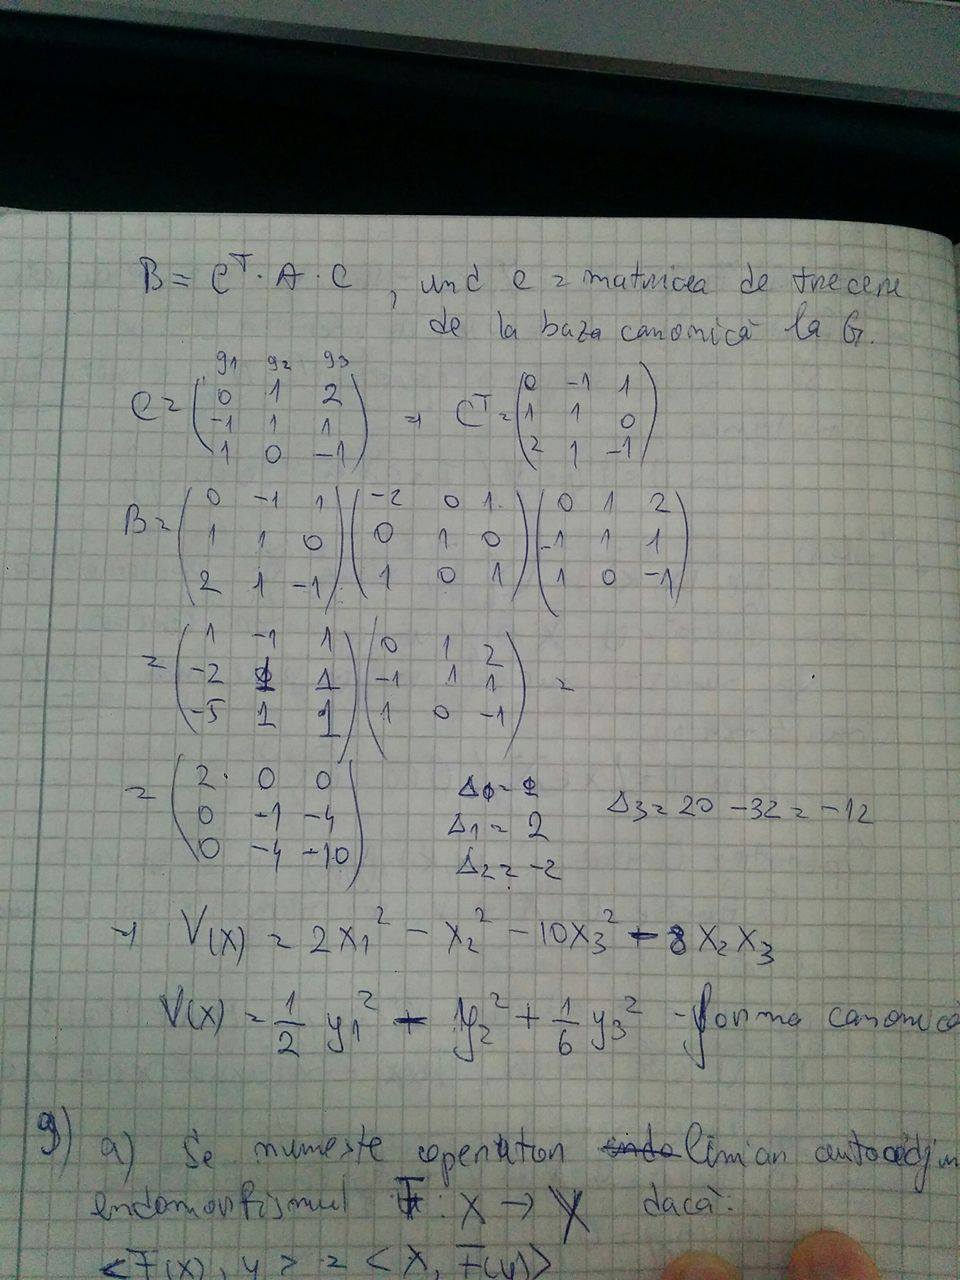 B = C^T · A · C , und C = matricea de trecere
de la baza canonică la G.
g1 g2 g3
C = (0 1 2; -1 1 1; 1 0 -1) ⇒ C^T = (0 -1 1; 1 1 0; 2 1 -1)
B = (0 -1 1; 1 1 0; 2 1 -1) (-2 0 1; 0 1 0; 1 0 1) (0 1 2; -1 1 1; 1 0 -1)
= (1 -1 1; -2 1 1; -5 1 1) (0 1 2; -1 1 1; 1 0 -1) =
= (2 0 0; 0 -1 -4; 0 -4 -10)
Δ0 = 1
Δ1 = 2
Δ2 = -2
Δ3 = 20 - 32 = -12
⇒ V(x) = 2x1² - x2² - 10x3² - 8 x2 x3
V(x) = 1/2 y1² - 1y2² + 1/6 y3² - forma canonică
9) a) Se numeste operator liniar autoadjun
endomorfismul F : X → X dacă:
<F(x), y> = <x, F(y)>